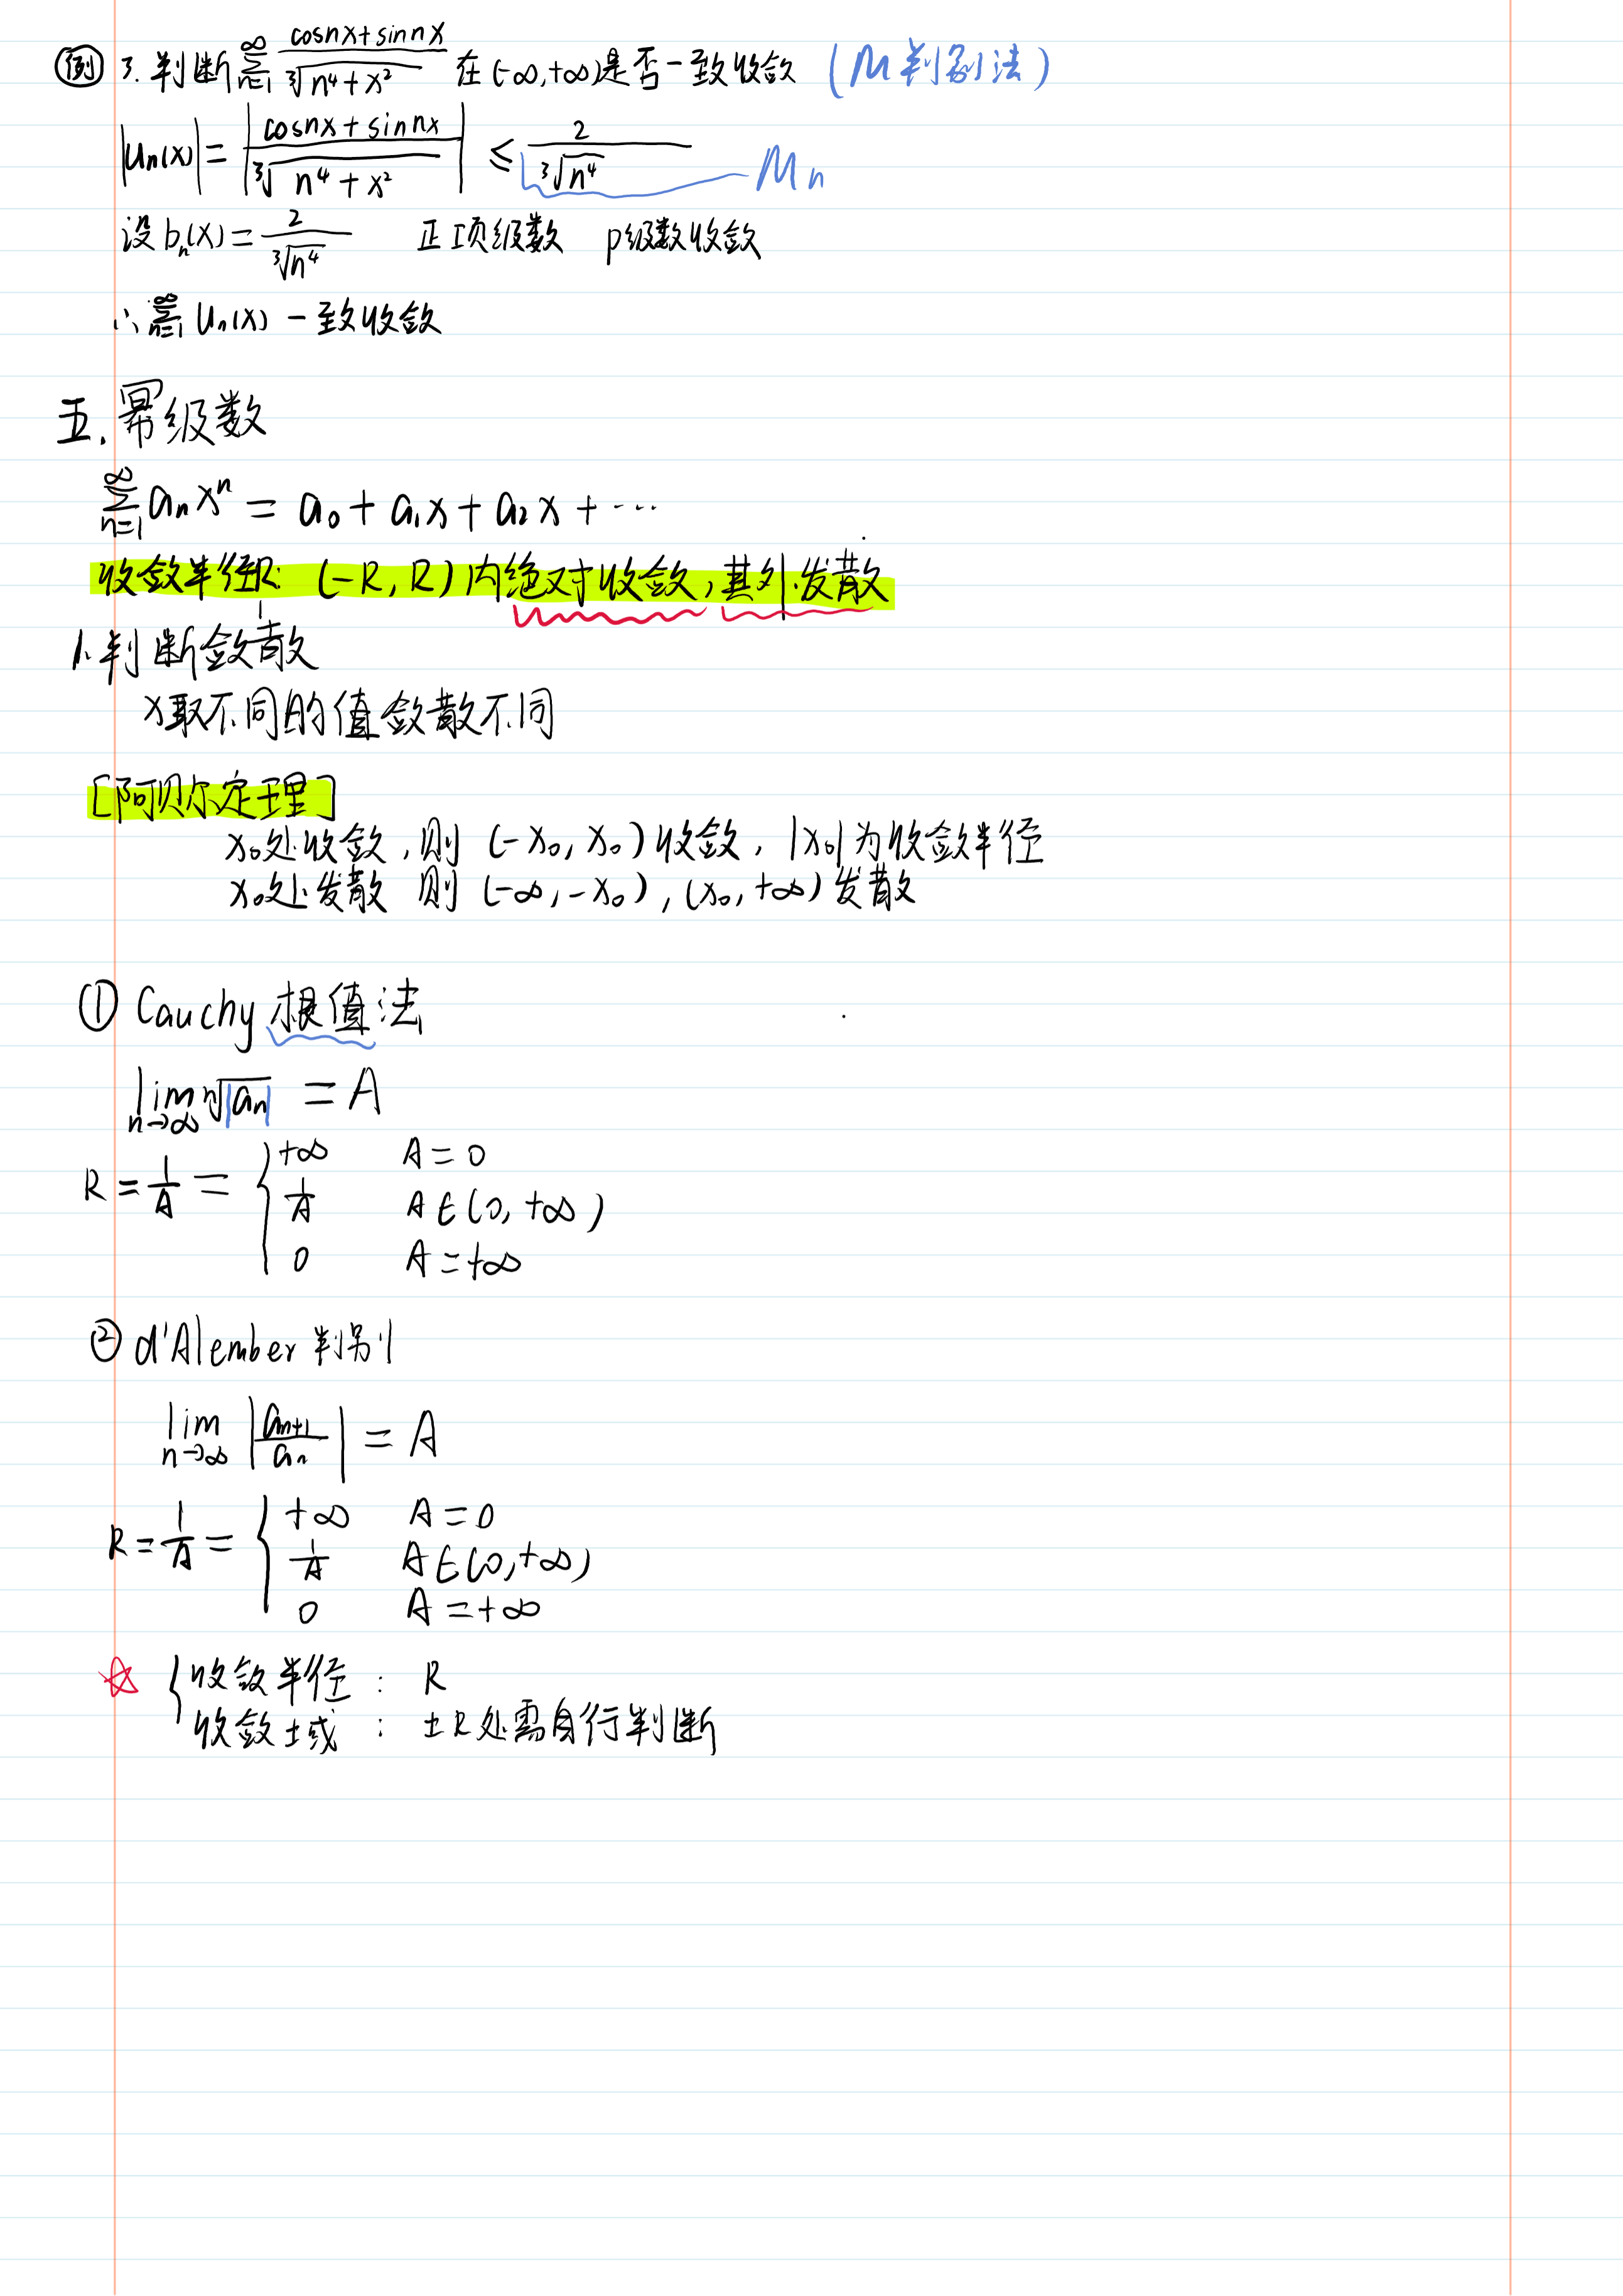 例 3. 判断 $\sum_{n=1}^{\infty} \frac{\cos nx + \sin nx}{\sqrt[3]{n^4 + x^2}}$ 在 (-∞, +∞) 是否一致收敛 (M判别法)
$|u_n(x)| = \left| \frac{\cos nx + \sin nx}{\sqrt[3]{n^4 + x^2}} \right| \leq \frac{2}{\sqrt[3]{n^4}}$ $M_n$
设 $b_n(x) = \frac{2}{\sqrt[3]{n^4}}$ 正项级数 p级数收敛
∴ $\sum_{n=1}^{\infty} u_n(x)$ 一致收敛
五. 幂级数
$\sum_{n=1}^{\infty} a_n x^n = a_0 + a_1 x + a_2 x + \cdots$
收敛半径R: (-R, R) 内绝对收敛, 其外发散
1. 判断敛散
x取不同的值敛散不同
[阿贝尔定理]
$x_0$处收敛, 则 $(-x_0, x_0)$ 收敛, $|x_0|$ 为收敛半径
$x_0$处发散 则 $(-\infty, -x_0)$, $(x_0, +\infty)$ 发散
① Cauchy 根值法
$\lim_{n \to \infty} \sqrt[n]{|a_n|} = A$
$R = \frac{1}{A} = \begin{cases} +\infty & A = 0 \\ \frac{1}{A} & A \in (0, +\infty) \\ 0 & A = +\infty \end{cases}$
② d'Alember 判别
$\lim_{n \to \infty} \left| \frac{a_{n+1}}{a_n} \right| = A$
$R = \frac{1}{A} = \begin{cases} +\infty & A = 0 \\ \frac{1}{A} & A \in (0, +\infty) \\ 0 & A = +\infty \end{cases}$
☆ { 收敛半径 : R
收敛域 : ±R处需自行判断